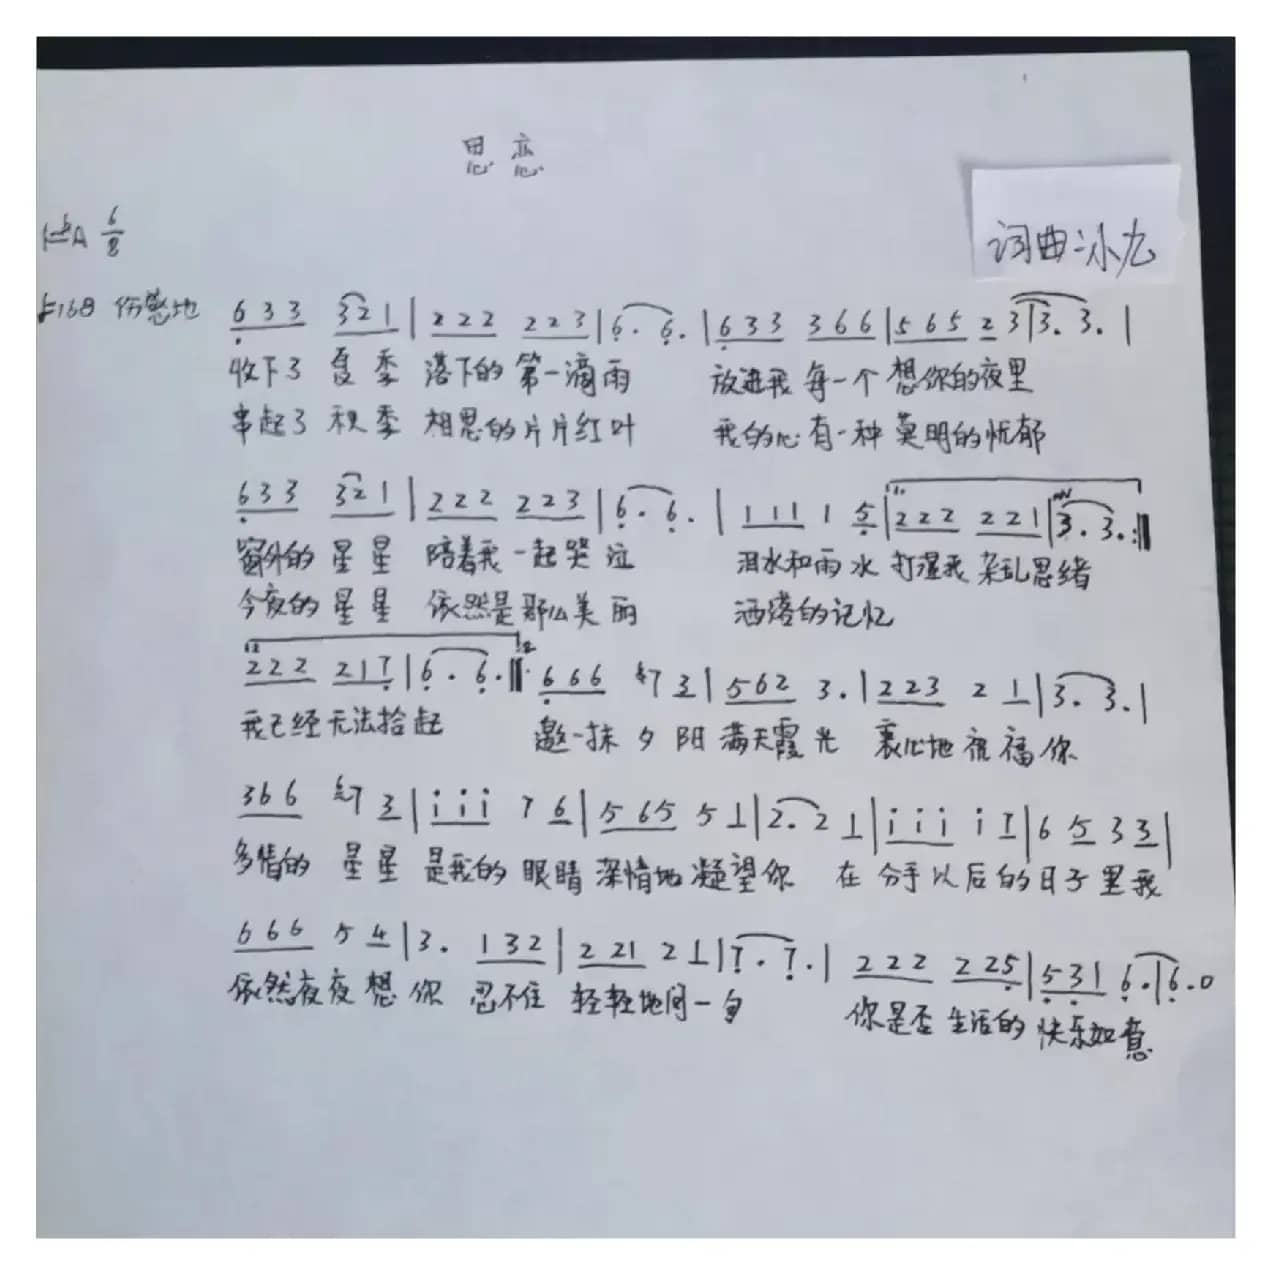 思恋
1=bA 6/8
词曲:小九
♩=168 伤感地 6 3 3 3 2 1 | 2 2 2 2 2 3 | 6. 6. | 6 3 3 3 6 6 | 5 6 5 2 3 | 3. 3. |
收下了 夏季 落下的 第一滴雨 放进我 每一个 想你的夜里
串起了 秋季 相思的片片红叶 我的心有一种 莫明的忧郁
6 3 3 3 2 1 | 2 2 2 2 2 3 | 6. 6. | 1 1 1 1 5 | 2 2 2 2 2 1 | 3. 3. :‖
窗外的 星星 陪着我 一起哭泣 泪水和雨水 打湿我 杂乱思绪
今夜的 星星 依然是那么美丽 洒落的记忆
2 2 2 2 1 7 | 6. 6. ‖ 6 6 6 7 3 | 5 6 2 3. | 2 2 3 2 1 | 3. 3. |
我已经无法拾起 邀一抹夕阳 满天霞光 衷心地祝福你
3 6 6 7 3 | i i i 7 6 | 5 6 5 5 1 | 2. 2 1 | i i i i 7 | 6 5 3 3 |
多情的 星星 是我的 眼睛 深情地凝望你 在分手以后的日子里我
6 6 6 5 4 | 3. 1 3 2 | 2 2 1 2 1 | 7. 7. | 2 2 2 2 2 5 | 5 3 1 6. | 6. 0
依然夜夜想你 忍不住 轻轻地问一句 你是否 生活的 快乐如意